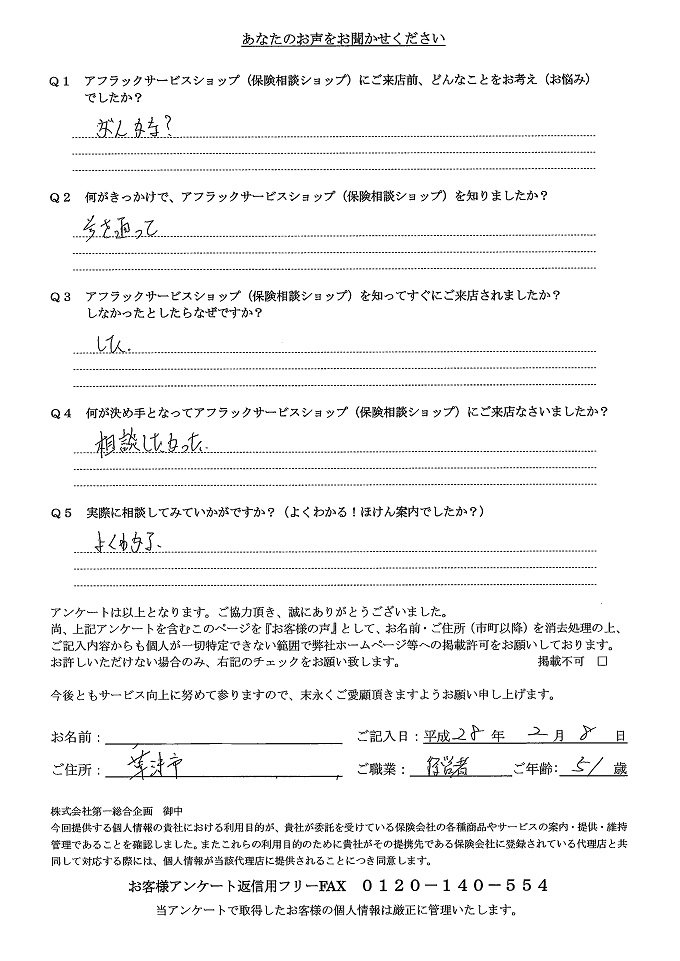 あなたのお声をお聞かせください
Q1 アフラックサービスショップ（保険相談ショップ）にご来店前、どんなことをお考え（お悩み）
でしたか？
がんかな？
Q2 何がきっかけで、アフラックサービスショップ（保険相談ショップ）を知りましたか？
を通って
Q3 アフラックサービスショップ（保険相談ショップ）を知ってすぐにご来店されましたか？
しなかったとしたらなぜですか？
した。
Q4 何が決め手となってアフラックサービスショップ（保険相談ショップ）にご来店なさいましたか？
相談したかった。
Q5 実際に相談してみていかがですか？（よくわかる！ほけん案内でしたか？）
よくわかる。
アンケートは以上となります。ご協力頂き、誠にありがとうございました。
尚、上記アンケートを含むこのページを『お客様の声』として、お名前・ご住所（市町以降）を消去処理の上、
ご記入内容からも個人が一切特定できない範囲で弊社ホームページ等への掲載許可をお願いしております。
お許しいただけない場合のみ、右記のチェックをお願い致します。 掲載不可 □
今後ともサービス向上に努めて参りますので、末永くご愛顧頂きますようお願い申し上げます。
お名前： ご記入日：平成28年 2月 8日
ご住所： 草津市 ご職業： 経営者 ご年齢： 51歳
株式会社第一総合企画 御中
今回提供する個人情報の貴社における利用目的が、貴社が委託を受けている保険会社の各種商品やサービスの案内・提供・維持
管理であることを確認しました。またこれらの利用目的のために貴社がその提携先である保険会社に登録されている代理店と共
同して対応する際には、個人情報が当該代理店に提供されることにつき同意します。
お客様アンケート返信用フリーFAX 0120－140－554
当アンケートで取得したお客様の個人情報は厳正に管理いたします。